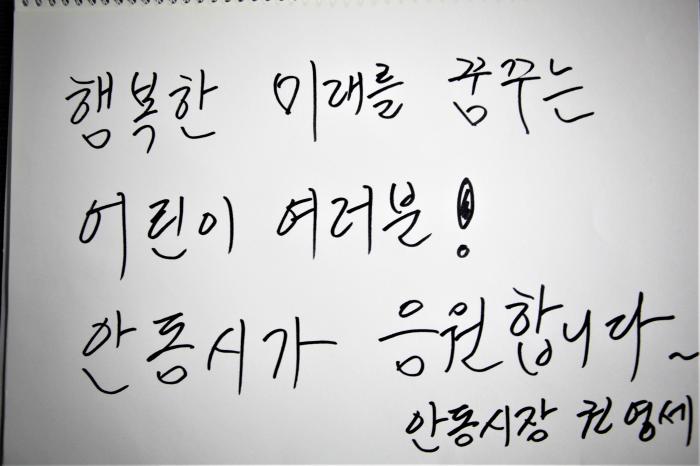 행복한 미래를 꿈꾸는
어린이 여러분!
안동시가 응원합니다~
안동시장 권영세